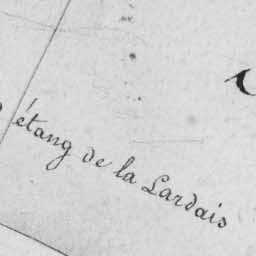 étang de la Lardais